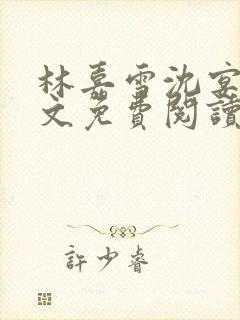 林嘉雪沈宴
文免費閱讀
許少睿